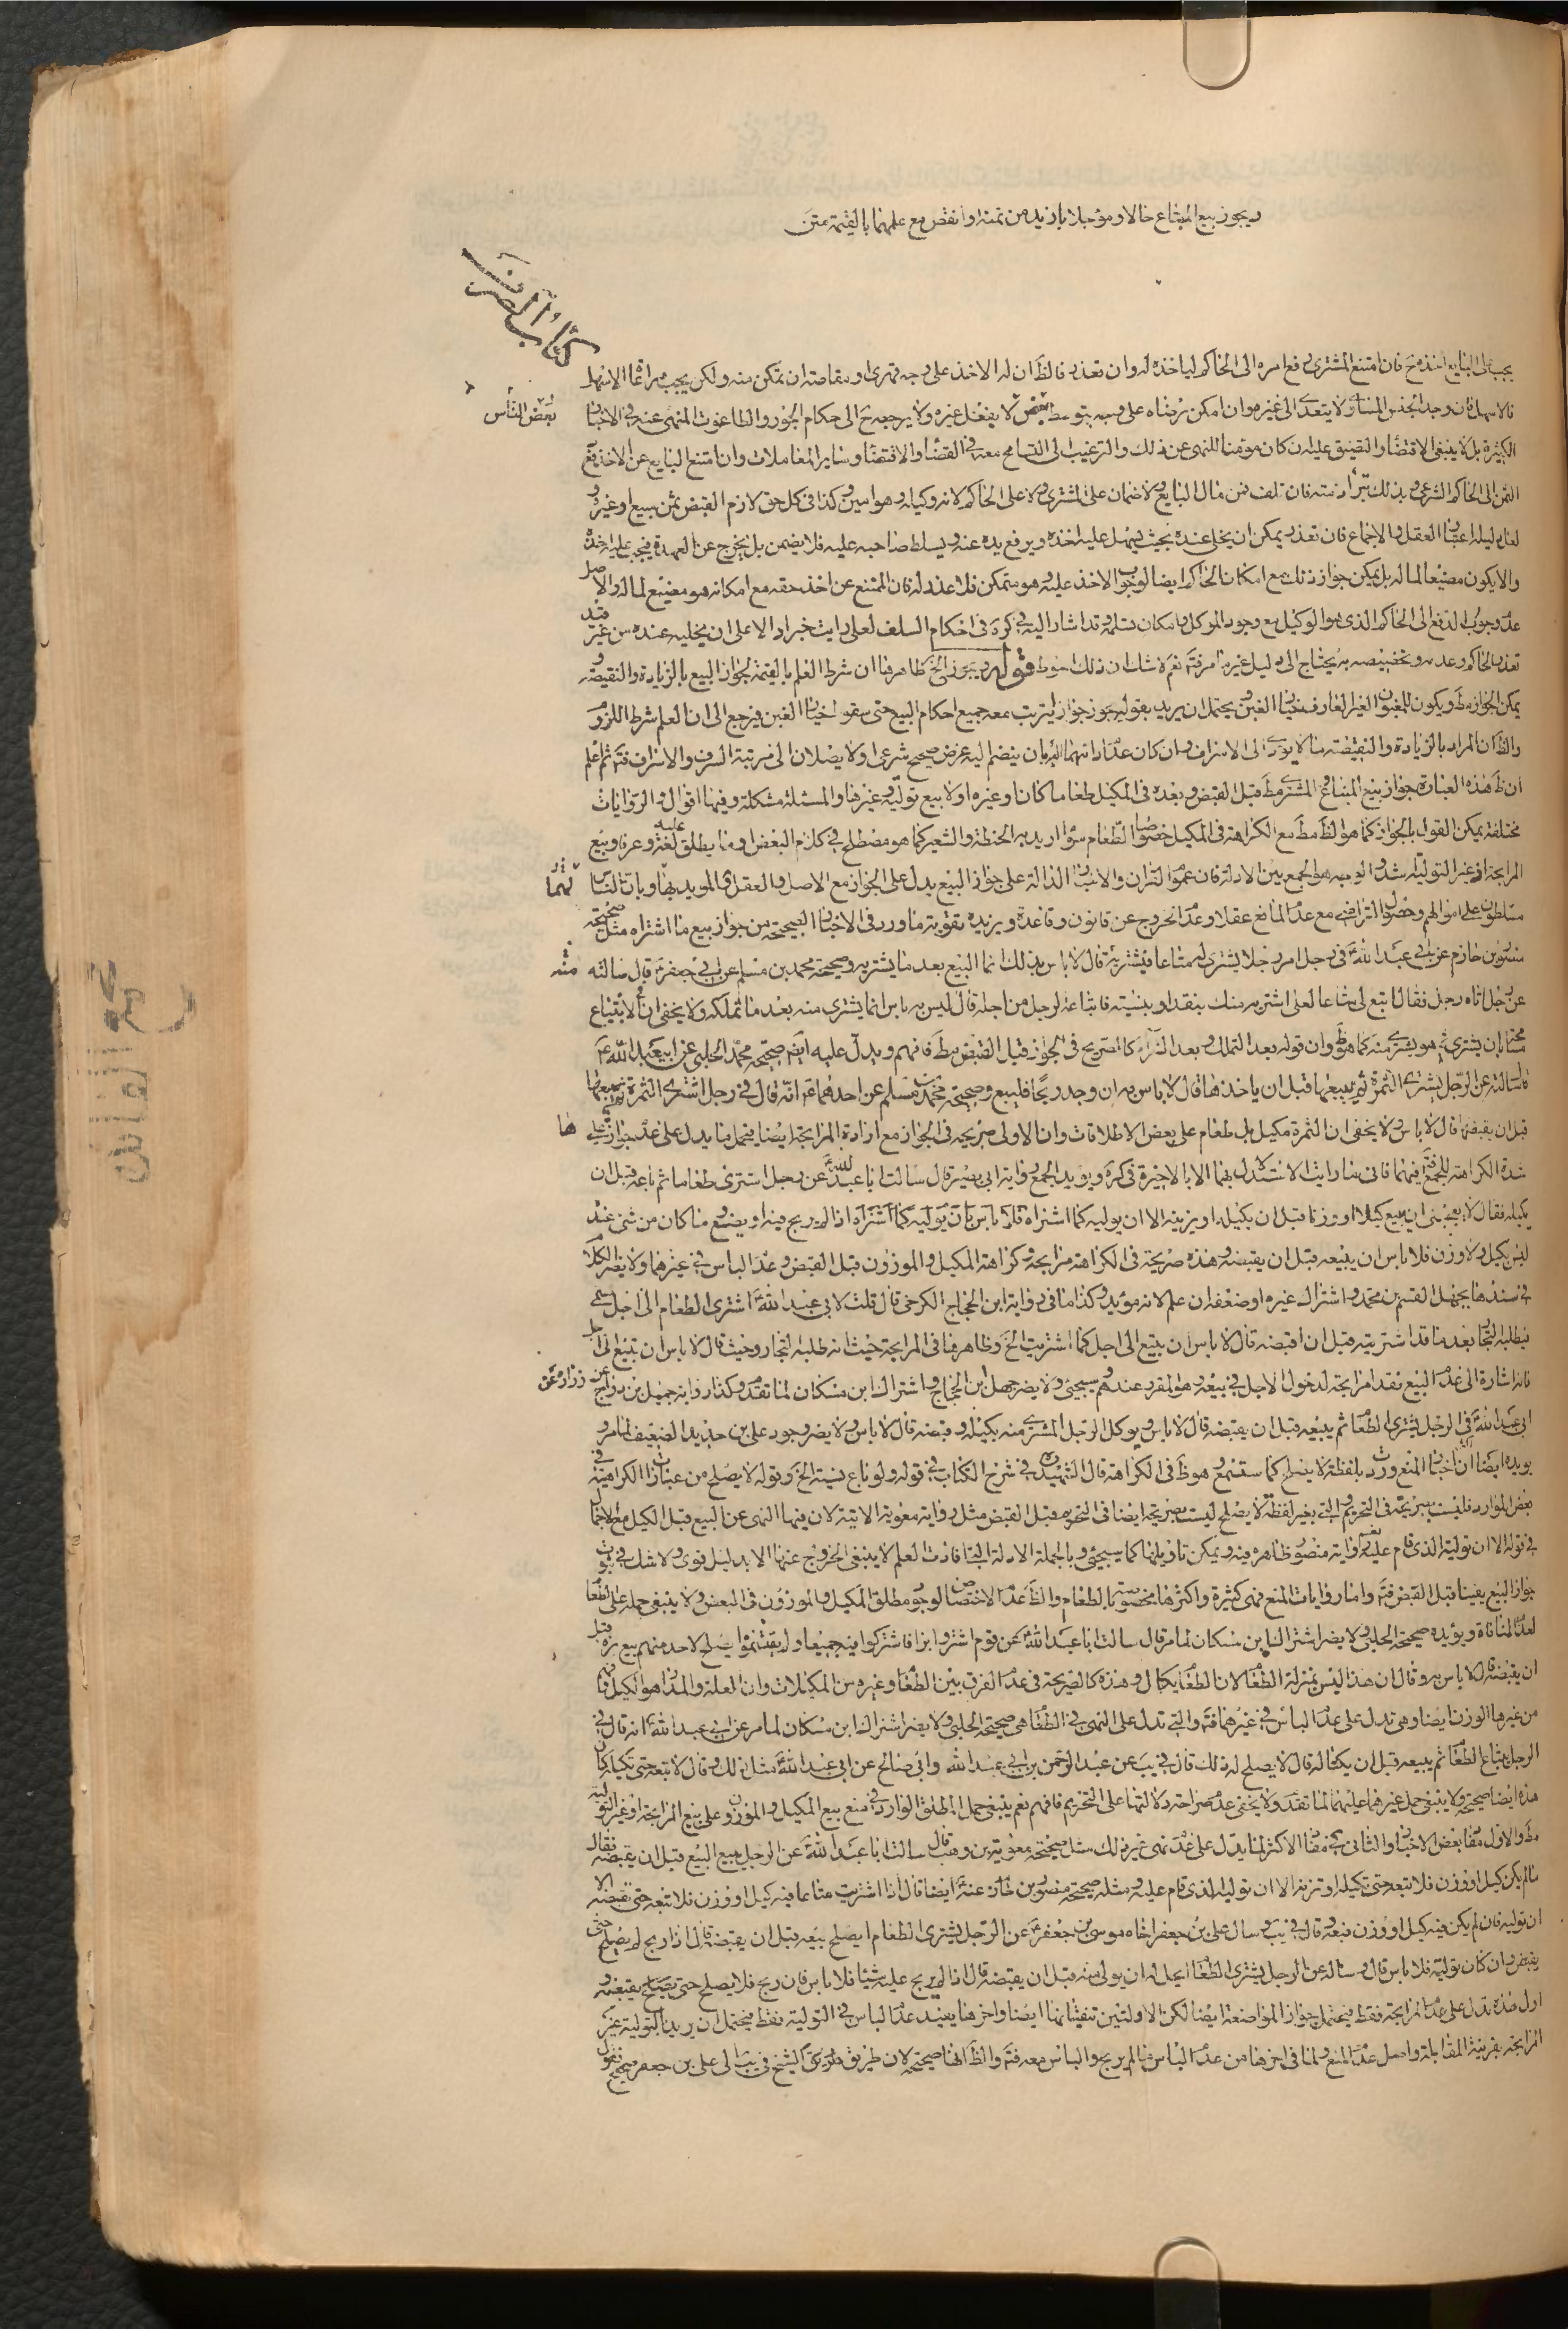 ويجوز بيع المبتاع حالا ومؤجلا بازيد من ثمنه وانقص مع علمهما بالقيمة متن
كتاب
يجب على البايع اخذه ح فان امتنع المشترى رفع امره الى الحاكم لياخذه له وان تعذر فالظ ان له الاخذ على وجه قهرى او مقاصة ان تمكن منه ولكن يجب مراعاة الاسهل
فالاسهل فان وجد الجنس المساوى لا يتعدى الى غيره وان امكن برضاه على وجه بتوسط بعض لا يفعل غيره ولا يرجع ح الى حكام الجور والطاغوت المنهى عنه فى الاخبار
بعض الناس
الكثيرة بل لا ينبغى الاقتضاء والتضيق عليه ان كان مؤمنا للنهى عن ذلك والترغيب الى التسامح معه فى القضاء والاقتضاء وساير المعاملات وان امتنع البايع عن الاخذ دفع
الثمن الى الحاكم الشرعى وبذلك تبرأ ذمته فان تلف فمن مال البايع ولا ضمان على المشترى ولا على الحاكم لانه وكيله وهو امين وكذا فى كل حق لازم القبض ثمن مبيع او غيره و
لعل دليله اعتبار العقل والاجماع فان تعذر يمكن ان يخلى عنده بحيث يسهل عليه اخذه ويرفع يده عنه ويسلط صاحبه عليه فلا يضمن بل يخرج عن العهدة فيجب عليه اخذه
والا يكون مضيعا لماله بل يمكن جواز ذلك مع امكان الحاكم ايضا لوجوب الاخذ عليه وهو متمكن فلا عذر له فان الممتنع عن اخذ حقه مع امكانه هو مضيع لماله والاصل
عدم وجوب الدفع الى الحاكم الذى هو الوكيل مع وجود الموكل وامكان تسلمه وقد اشار اليه فى كره فى احكام السلف لعلى رايت خبرا دالا على ان يخليه عنده من غير قيد
تعذر الحاكم وعدمه وتخصيصه به يحتاج الى دليل غير ما مر فتم نعم لا شك ان ذلك احوط قوله ويجوز الخ ظاهر هنا ان شرط العلم بالقيمة لجواز البيع بالزيادة والنقيصة و
يمكن الجواز مط ويكون للمغبون الغير العارف خيار الغبن ويحتمل ان يريد بقوله يجوز جواز يترتب معه جميع احكام البيع حتى سقوط خيار الغبن فيرجع الى ان العلم شرط اللزوم
والظ ان المراد بالزيادة والنقيصة ما لا يؤدى الى الاسراف وان كان عند ذاتهما الا بان ينضم اليه غرض صحيح شرعى ولا يصلان الى مرتبة السرف والاسراف فتم ثم اعلم
ان ظ هذه العبارة جواز بيع المبتاع المشترى مط قبل القبض وبعده فى المكيل طعاما كان او غيره اولا بيع تولية وغيرها والمسئلة مشكلة وفيها اقوال والروايات
مختلفة يمكن القول بالجواز كما هو الظ مط مع الكراهة فى المكيل خصوصا الطعام سواء اريد به الحنطة والشعير كما هو مصطلح فى كلام البعض او ما يطلق عليه لغة وعرفا وبيع
المرابحة او غير التولية اشد والوجه هو الجمع بين الادلة فان عموم القران والاخبار الدالة على جواز البيع يدل على الجواز مع الاصل والعقل المويد بهما وبان الناس
مسلطون على اموالهم وحصول التراضى مع عدم المانع عقلا وعدم الخروج عن قانون وقاعدة ويزيده تقوية ما ورد فى الاخبار الصحيحة من جواز بيع ما اشتراه مثل صحيحة
منصور بن حازم عن ابى عبد الله ع فى رجل امر رجلا يشترى له متاعا فيشتريه قال لا باس بذلك انما البيع بعد ما يشتريه وصحيحة محمد بن مسلم عن ابى جعفر ع قال سالته
منه
عن رجل اتاه رجل فقال ابتع لى متاعا لعلى اشتريه منك بنقد او بنسيته فابتاعه الرجل من اجله قال ليس به باس انما يشترى منه بعد ما تملكه ولا يخفى ان الابتياع
يشترى منه كما هو ظ وان قوله بعد التملك وبعد الشراء كالتصريح فى الجواز قبل القبض مط فافهم ويدل عليه ايض صحيحة محمد الحلبى عن ابى عبد الله ع
قال سالته عن الرجل يشترى الثمرة ثم يبيعها قبل ان ياخذها قال لا باس به ان وجد ربحا فليبع وصحيحة محمد بن مسلم عن احدهما ع انه قال فى رجل اشترى الثمرة ثم يبيعها
قبل ان يقبضها قال لا باس ولا يخفى ان الثمرة مكيل بل طعام على بعض الاطلاقات وان الاولى صريحة فى الجواز مع ارادة المرابحة ايضا فيحمل ما يدل على عدم جوازه على
ها
شدة الكراهة للجمع فيهما فانى ما رايت الاستدلال بهما الا بالاخيرة فى كره ويويد الجمع رواية ابى بصير قال سالت ابا عبد الله ع عن رجل اشترى طعاما ثم باعه قبل ان
يكيله فقال لا يعجبنى ان يبيع كيلا او وزنا قبل ان يكيله او يزينه الا ان يوليه كما اشتراه فلا باس بان يوليه كما اشتراه اذا لم يربح فيه او يضع وما كان من شئ عنده
ليس بكيل ولا وزن فلا باس ان يبيعه قبل ان يقبضه وهذه صريحة فى الكراهة مرابحة وكراهة المكيل والموزون قبل القبض وعدم الباس فى غيرهما ولا يضر الكلام
فى سندها بجهل القسم بن محمد واشتراك غيره او ضعفه ان علم لانه مؤيد وكذا ما فى رواية ابن الحجاج الكرخى قال قلت لابى عبد الله ع اشترى الطعام الى اجل مسمى
فيطلبه التجار بعد ما قد اشتريته قبل ان اقبضه قال لا باس ان يبيع الى اجل كما اشتريت الخ وظاهر هنا فى المرابحة حيث انه طلبه التجار وحيث قال لا باس ان تبيع الى اجل
فانه اشارة الى عدم البيع نقدا مرابحة لدخول الاجل فى بيعه وهو المقرر عندهم وسيجئ ولا يضر جهل ابن الحجاج واشتراك ابن مسكان لما تقدم وكذا رواية جميل بن دراج عن
ابى عبد الله ع فى الرجل يشترى الطعام ثم يبيعه قبل ان يقبضه قال لا باس ويوكل الرجل المشترى منه بكيله وقبضه قال لا باس ولا يضر وجود على بن حديد الضعيف لما مر و
يويده ايضا ان اكثر اخبار المنع وردت بلفظة لا يصلح كما ستسمع وهو ظ فى الكراهة قال الشهيد ره فى شرح الكتاب فى قوله ولو باع نسيئة الخ وقوله لا يصلح من عبارات الكراهية فى
بعض الموارد فليست بصريحة فى التحريم والتى بغير لفظة لا يصلح ليست بصريحة ايضا فى التحريم قبل القبض مثل رواية معوية الاتية لان فيها النهى عن البيع قبل الكيل مع الاجمال
فى قوله الا ان توليه الذى قام عليه ورواية منصور ظاهرة فيه ويمكن تاويلها كما سيجئ وبالجملة الادلة اذا افادت العلم لا ينبغى الخروج عنها الا بدليل قوى ولا شك فى ثبوت
جواز البيع يقينا قبل القبض فتم واما روايات المنع فهى كثيرة واكثرها مخصوصة بالطعام والظ عدم الاختصاص لوجود مطلق المكيل والموزون فى البعض ولا ينبغى حمله على الطعام
لعدم المنافاة ويؤيده صحيحة الحلبى ولا يضر اشتراك ابن مسكان لما مر قال سالت ابا عبد الله ع عن قوم اشتروا بزا فاشتركوا فيه جميعا ولم يقتسموا ايصلح لاحد منهم بيع بزه قبل
ان يقبضه قال لا باس به وقال ان هذا ليس بمنزلة الطعام لان الطعام يكال وهذه كالصريحة فى عدم الفرق بين الطعام وغيره من المكيلات وان العلة والمدار هو الكيل
من غيرها الوزن ايضا وهى تدل على عدم الباس فى غيرهما فتم والتى تدل على النهى فى الطعام هى صحيحة الحلبى ولا يضر اشتراك ابن مسكان لما مر عن ابى عبد الله ع انه قال فى
الرجل يبتاع الطعام ثم يبيعه قبل ان يكتاله قال لا يصلح له ذلك قال فى يب عن عبد الرحمن بن ابى عبد الله وابى صالح عن ابى عبد الله ع مثل ذلك وقال لا تبعه حتى تكيله
هذه ايضا صحيحة ولا ينبغى حمل غيرهما عليهما لما تقدم ولا يخفى عدم صراحة دلالتها على التحريم فافهم نعم ينبغى حمل المطلق الوارد فى منع بيع المكيل والموزون على بيع المرابحة او غير التولية
مط والاول مفاد بعض الاخبار والثانى مفاد الاكثر لما يدل على عدم نهى غير ذلك مثل صحيحة معوية بن وهب قال سالت ابا عبد الله ع عن الرجل يبيع البيع قبل ان يقبضه فقال
ما لم يكن كيل او وزن فلا تبعه حتى تكيله او تزنه الا ان توليه الذى قام عليه ومثله صحيحة منصور بن حازم عنه ع ايضا قال اذا اشتريت متاعا فيه كيل او وزن فلا تبعه حتى تقبضه الا
ان توليه فان لم يكن فيه كيل او وزن فبعه وقال فى يب وسال على بن جعفر اخاه موسى بن جعفر ع عن الرجل يشترى الطعام ايصلح بيعه قبل ان يقبضه قال اذا ربح لم يصلح حتى
يقبض وان كان تولية فلا باس قال وساله عن الرجل يشترى الطعام ايحل له ان يولى منه قبل ان يقبضه قال اذا لم يربح عليه شيئا فلا باس فان ربح فلا يصلح حتى يقبضه و
اول هذه تدل على عدم المرابحة فقط فيحتمل جواز المواضعة ايضا لكن الاولتين تنفيانها ايضا واخرها يفيد عدم الباس فى التولية فقط فيحتمل ان يريد بالتولية غير
المرابحة بقرينة المقابلة واصل عدم المنع ولما فى اخرها من عدم الباس ما لم يربح والباس معه فتم والظ انها صحيحة لان طريق الشيخ فى يب الى على بن جعفر صحيح